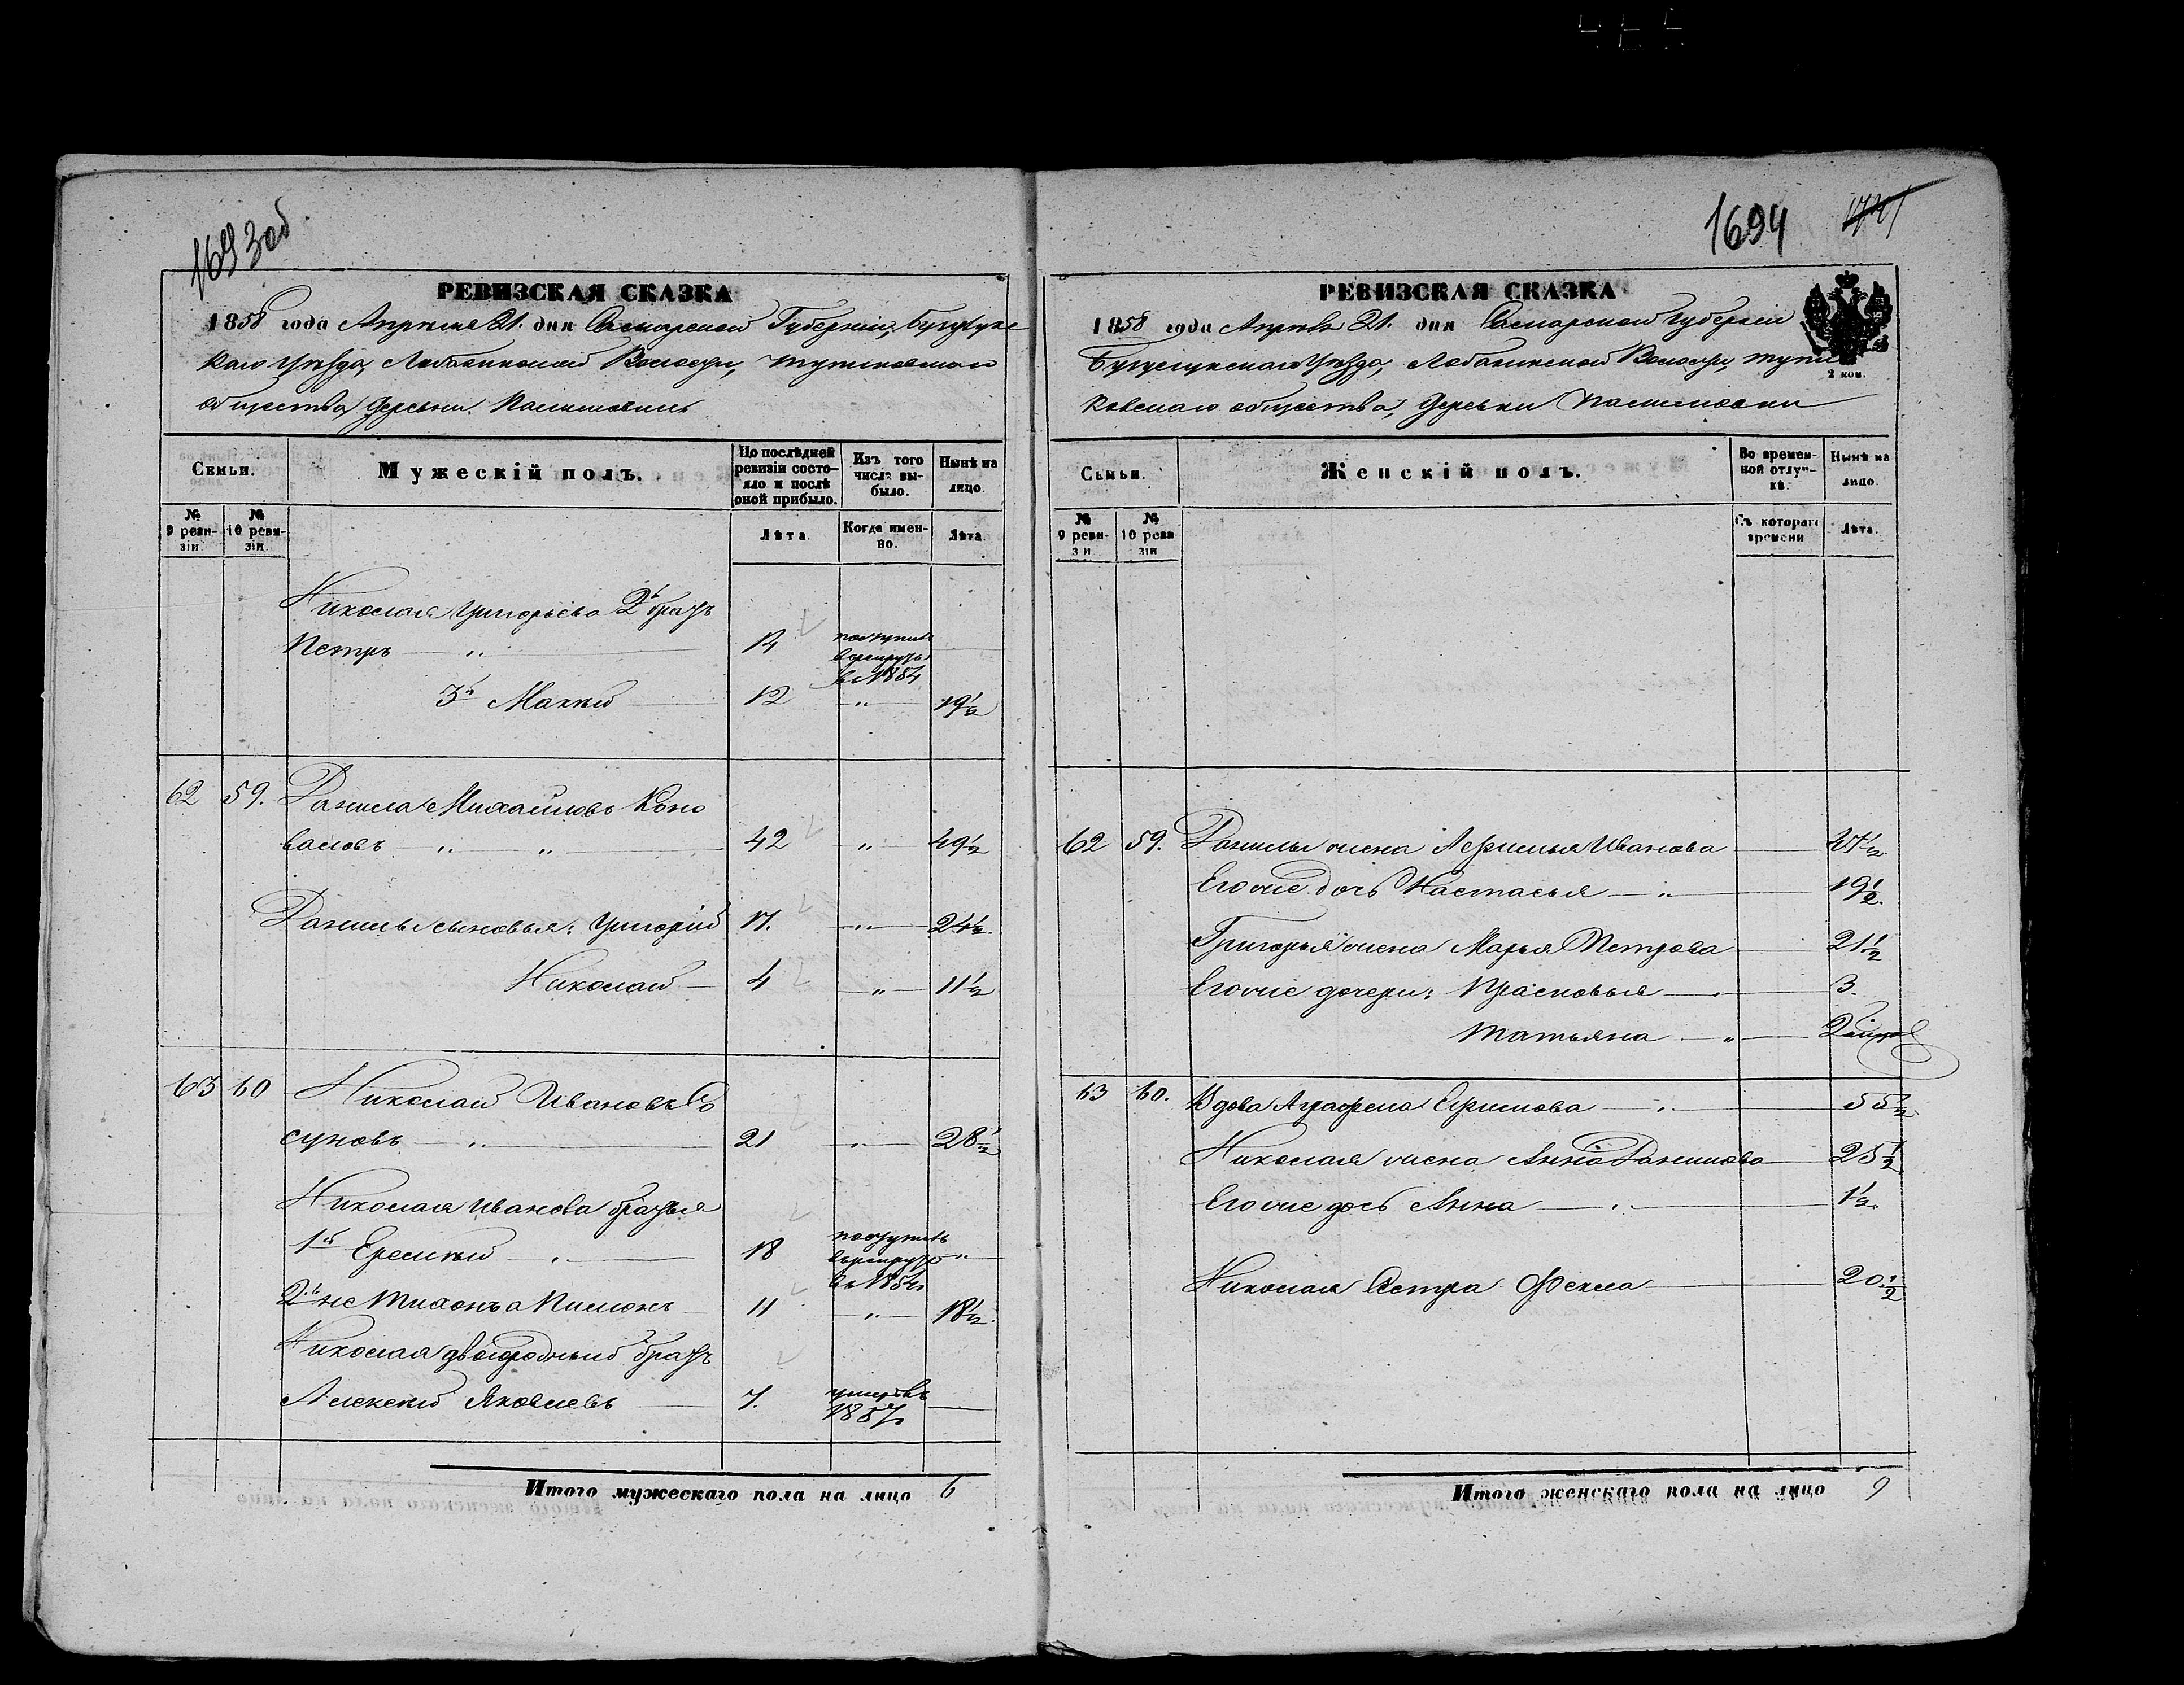 1693об
РЕВИЗСКАЯ СКАЗКА
1858 года Апреля 21. дня Самарской Губернии, Бугурус
каго Уезда, Лобазинской Волости,
общества Деревни
Семьи.
Мужескій полъ.
По послѣдней ревизіи состояло и послѣ оной прибыло.
Изъ того числа выбыло.
Нынѣ на лицо.
№ 9 ревизіи
№ 10 ревизіи.
Лѣта
Когда именно.
Лѣта.
Николая Григорьева 2й братъ
Петръ — „ 14 поступилъ
в рекруты
в 1854
3й Макей 12 „ 19½
62 59. Данила Михайловъ Коно
валовъ „ „ 42 „ 49½
Данилы сыновья: Григорій 17. „ 24½
Николай 4 „ 11½
63 60 Николай Ивановъ
суновъ „ 21 „ 28½
Николая Иванова братья
1й Еремей 18 поступилъ
в рекруты „
в 1854
2й не Тихонъ а Пимонъ 11 „ 18½
Николая двоюродный братъ
Алексей Яковлевъ 7. умеръ въ
1857
Итого мужескаго пола на лицо 6
1694
РЕВИЗСКАЯ СКАЗКА
1858 года Апреля 21. дня Самарской Губернии
Бугурусланскаго Уезда, Лобазинской Волости,
ковскаго общества, Деревни
2 коп.
Семьи.
Женскій полъ.
Во временной отлучкѣ.
Нынѣ на лицо.
№ 9 ревизіи
№ 10 ревизіи
Съ котораго времени
Лѣта.
62 59. Данилы жена Афимья Иванова 47½
Его же дочь Настасья „ 19½
Григорья жена Марья Петрова 21½
Его же дочери: Прасковья 3.
Татьяна „
63 60. Вдова Аграфена Ефимова 55½
Николая жена Анна Данилова 25½
Его же дочь Анна 1½
Николая сестра Фекла 20½
Итого женскаго пола на лицо 9